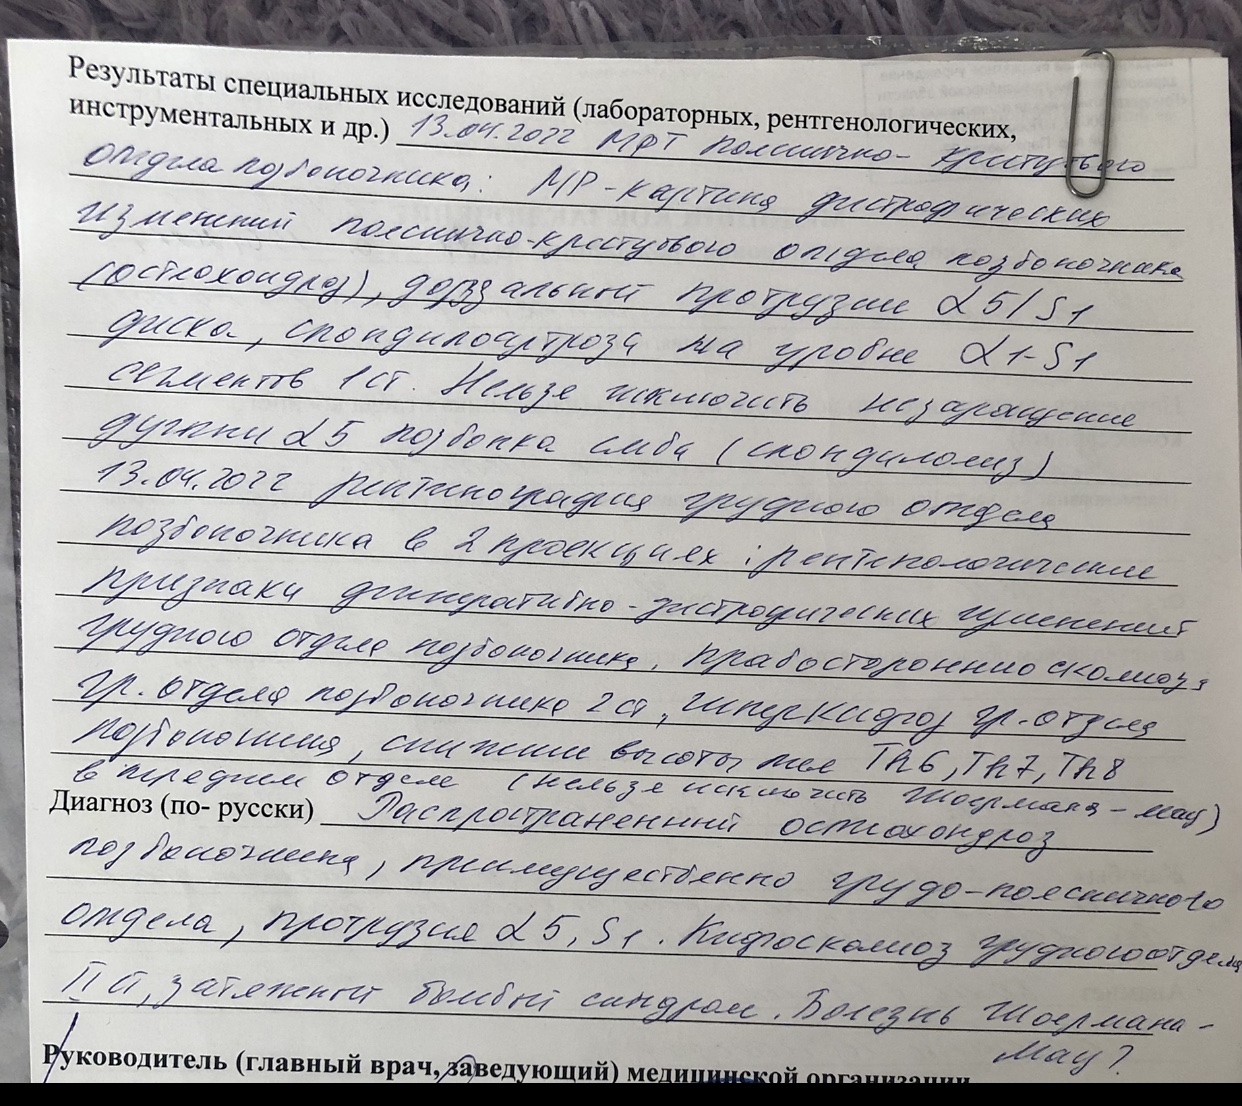 Результаты специальных исследований (лабораторных, рентгенологических,
инструментальных и др.) 13.04.2022 МРТ пояснично-крестцового
отдела позвоночника: МР-картина дистрофических
изменений пояснично-крестцового отдела позвоночника
(остеохондроз), дорзальной протрузии L5/S1
диска, спондилоартроза на уровне L1-S1
сегментов 1 ст. Нельзя исключить незаращение
дужки L5 позвонка слева (спондилолиз)
13.04.2022 рентгенография грудного отдела
позвоночника в 2 проекциях: рентгенологические
признаки дегенеративно-дистрофических изменений
грудного отдела позвоночника, правостороннего сколиоза
гр. отдела позвоночника 2 ст, гиперкифоз гр. отдела
позвоночника, снижение высоты тел Th6, Th7, Th8
в переднем отделе (нельзя исключить Шоермана-Мау)
Диагноз (по- русски) Распространенный остеохондроз
позвоночника, преимущественно грудо-поясничного
отдела, протрузия L5, S1. Кифосколиоз грудного отдела
II ст, затяжной болевой синдром. Болезнь Шоермана-
Мау?
Руководитель (главный врач, заведующий) медицинской организации